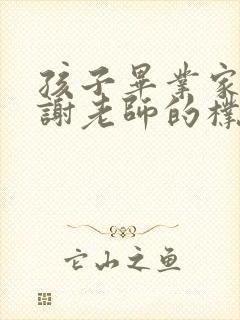 孩子畢業家
謝老師的樸
它山之鱼